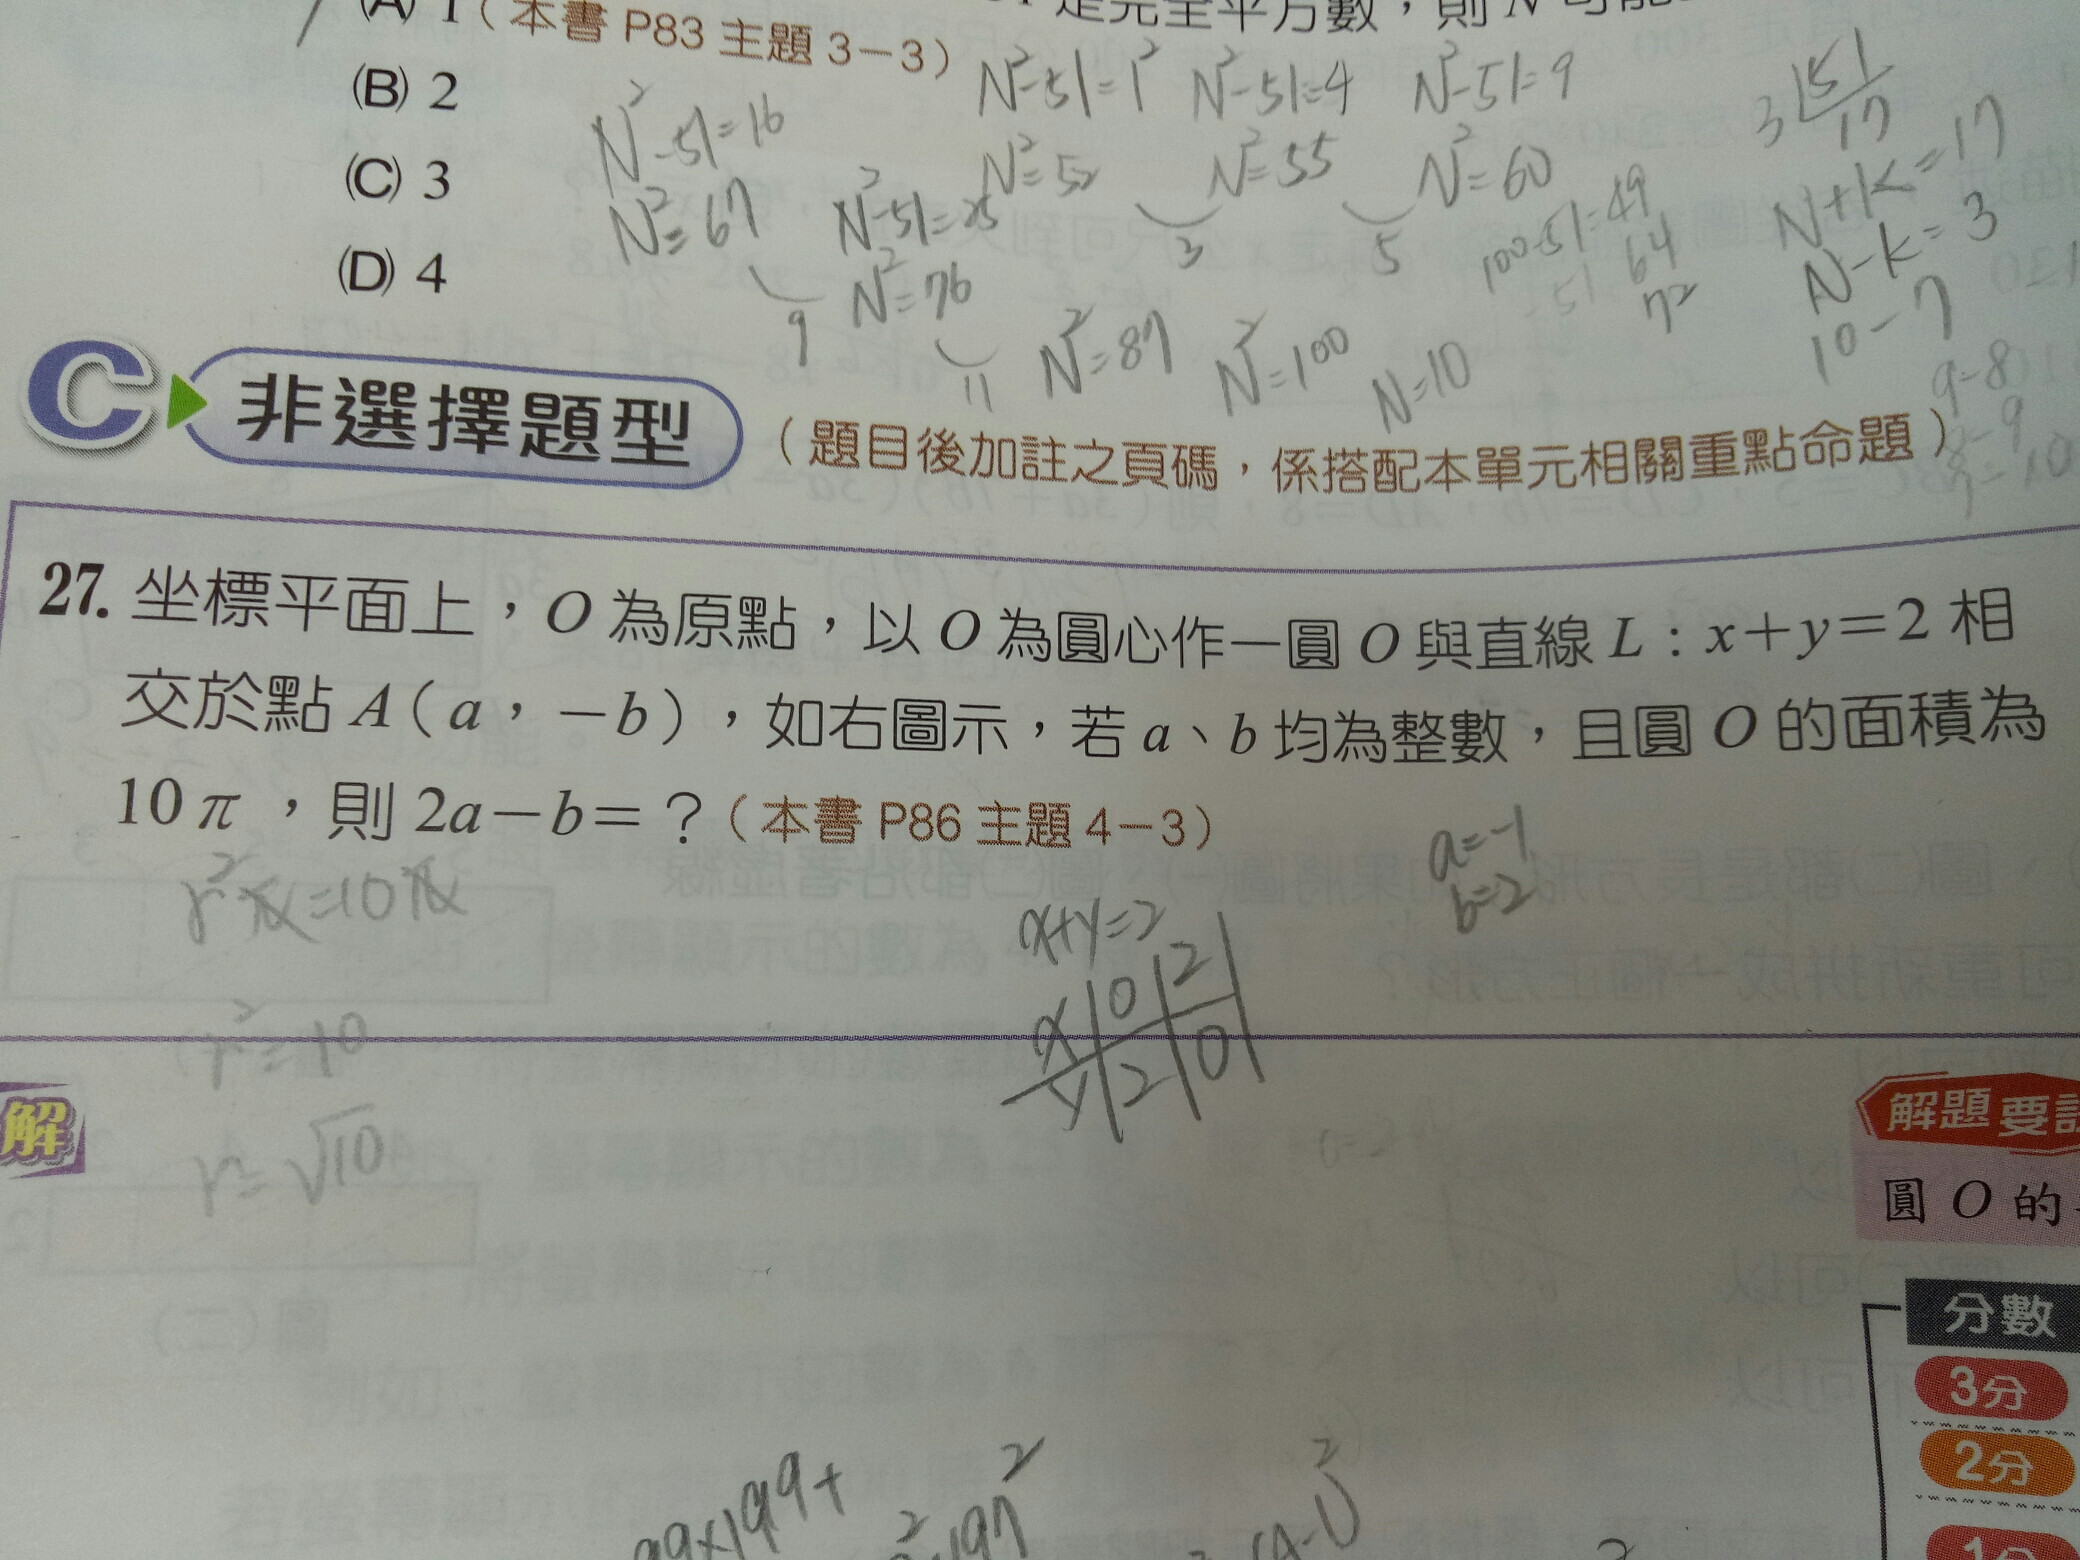 (A) 1（本書 P83 主題 3－3）
是完全平方數，則 N 可能
(B) 2
(C) 3
(D) 4
N²-51=1² N²-51=4 N²-51=9
N²=52 N²=55 N²=60
3 5
N²-51=16
N²=67
N²-51=25
N²=76
9 11
N²=87 N²=100 N=10
100-51=49
64
72
3 51
17
N+k=17
N-k=3
10-7
9-8
8-9
C 非選擇題型（題目後加註之頁碼，係搭配本單元相關重點命題）
27. 坐標平面上，O 為原點，以 O 為圓心作一圓 O 與直線 L：x＋y＝2 相
交於點 A（a，－b），如右圖示，若 a、b 均為整數，且圓 O 的面積為
10π，則 2a－b＝？（本書 P86 主題 4－3）
a=-1
b=2
r²π=10π
r²=10
r=√10
x+y=2
x 0 2
y 2 0
解
解題要
圓 O 的
分數
3分
2分
1分